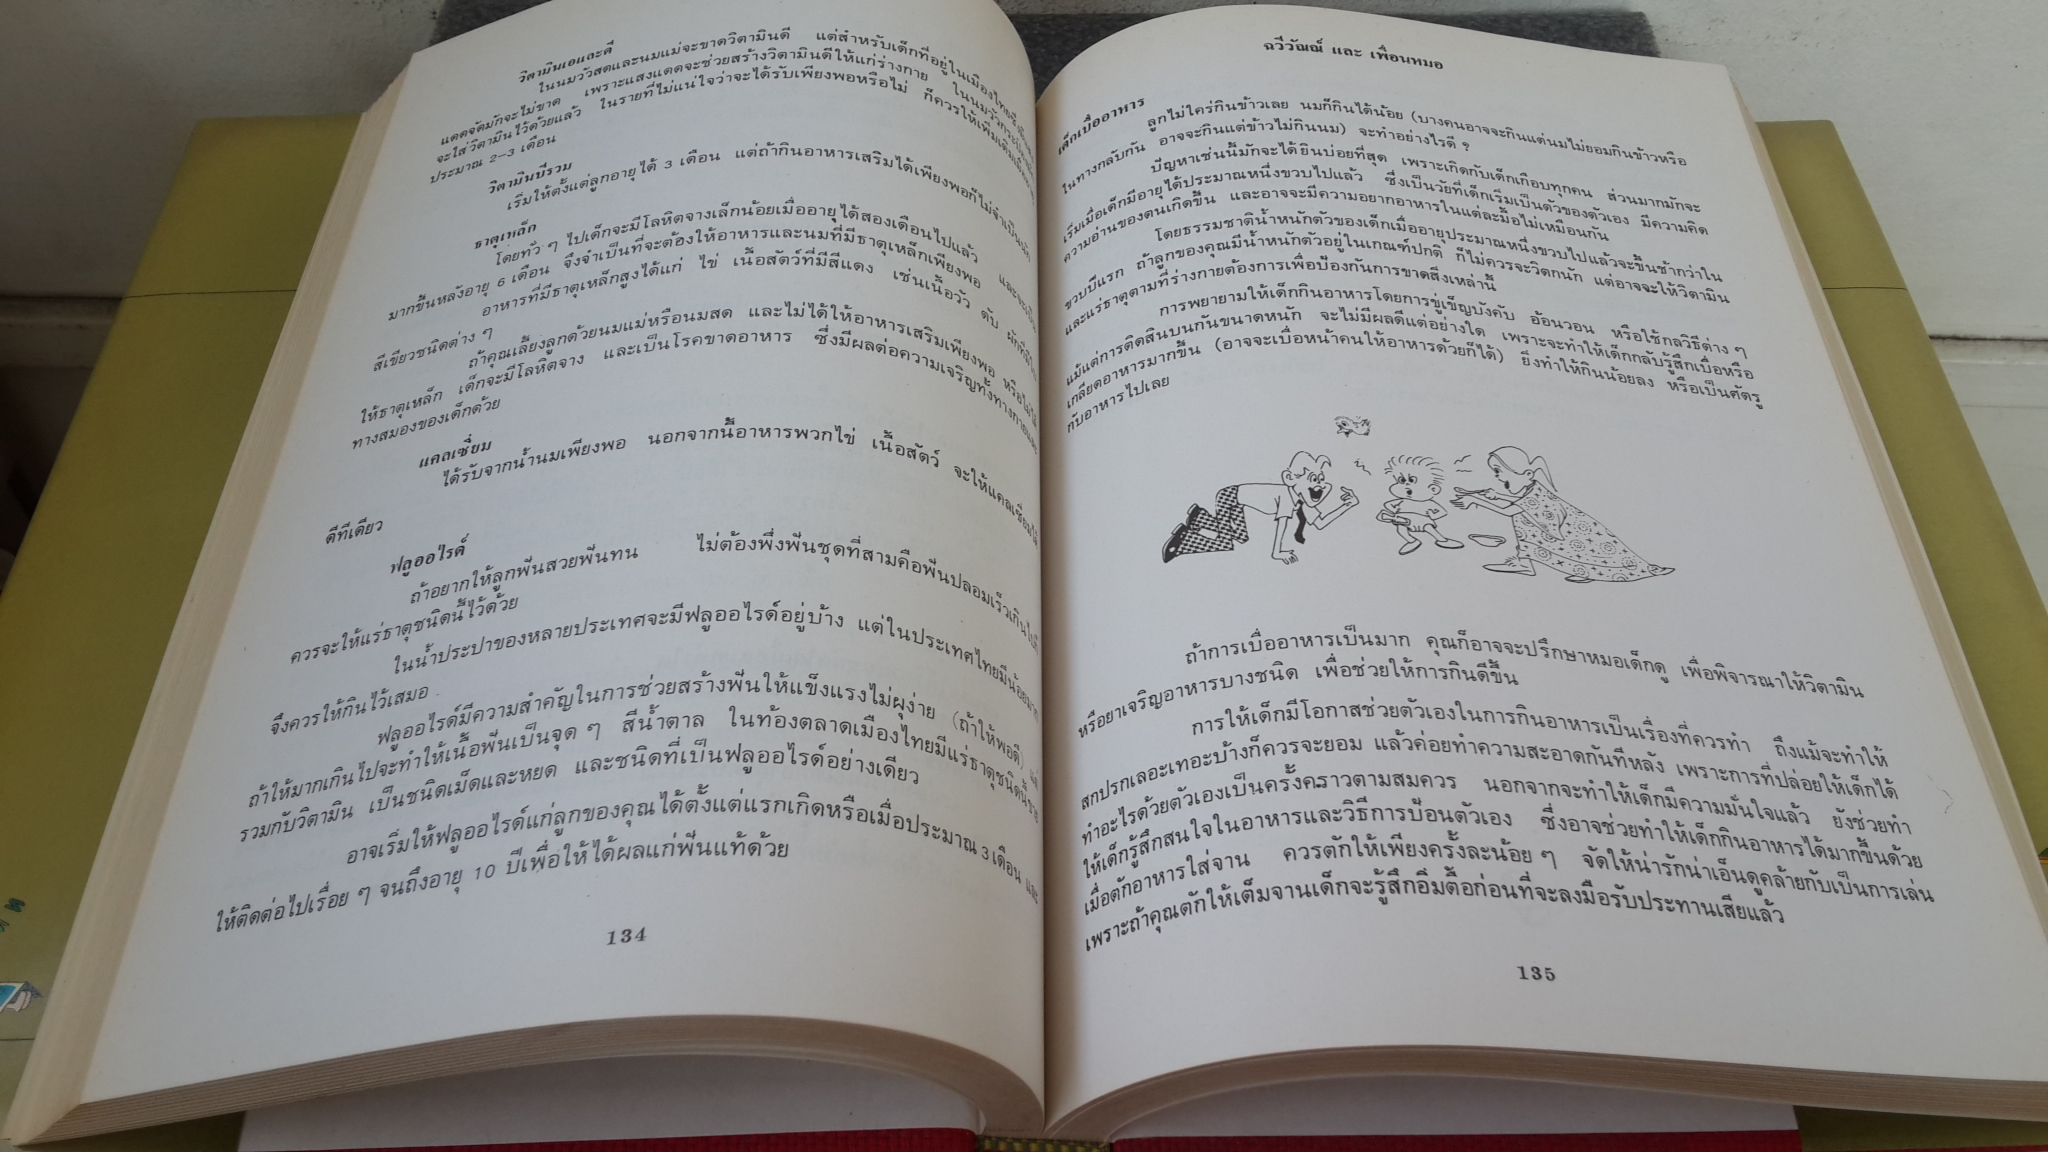 วิตามินเอและดี
ในนมวัวสดและนมแม่จะขาดวิตามินดี แต่สำหรับเด็กที่อยู่ในเมืองไทยซึ่งมี
แดดจัดมักจะไม่ขาด เพราะแสงแดดจะช่วยสร้างวิตามินดีให้แก่ร่างกาย ในนมวัวกระป๋อง
จะใส่วิตามินไว้ด้วยแล้ว ในรายที่ไม่แน่ใจว่าจะได้รับเพียงพอหรือไม่ ก็ควรให้เพิ่มเติมเมื่ออายุ
ประมาณ 2-3 เดือน
วิตามินบีรวม
เริ่มให้ตั้งแต่ลูกอายุได้ 3 เดือน แต่ถ้ากินอาหารเสริมได้เพียงพอก็ไม่จำเป็นนัก
ธาตุเหล็ก
โดยทั่ว ๆ ไปเด็กจะมีโลหิตจางเล็กน้อยเมื่ออายุได้สองเดือนไปแล้ว และจะเป็น
มากขึ้นหลังอายุ 6 เดือน จึงจำเป็นที่จะต้องให้อาหารและนมที่มีธาตุเหล็กเพียงพอ
อาหารที่มีธาตุเหล็กสูงได้แก่ ไข่ เนื้อสัตว์ที่มีสีแดง เช่นเนื้อวัว ตับ ผักที่มีใบ
สีเขียวชนิดต่าง ๆ
ถ้าคุณเลี้ยงลูกด้วยนมแม่หรือนมสด และไม่ได้ให้อาหารเสริมเพียงพอ หรือไม่ได้
ให้ธาตุเหล็ก เด็กจะมีโลหิตจาง และเป็นโรคขาดอาหาร ซึ่งมีผลต่อความเจริญทั้งทางกายและ
ทางสมองของเด็กด้วย
แคลเซี่ยม
ได้รับจากน้ำนมเพียงพอ นอกจากนี้อาหารพวกไข่ เนื้อสัตว์ จะให้แคลเซี่ยมได้
ดีทีเดียว
ฟลูออไรด์
ถ้าอยากให้ลูกฟันสวยฟันทน ไม่ต้องพึ่งฟันชุดที่สามคือฟันปลอมเร็วเกินไปก็
ควรจะให้แร่ธาตุชนิดนี้ไว้ด้วย
ในน้ำประปาของหลายประเทศจะมีฟลูออไรด์อยู่บ้าง แต่ในประเทศไทยมีน้อยมาก
จึงควรให้กินไว้เสมอ
ฟลูออไรด์มีความสำคัญในการช่วยสร้างฟันให้แข็งแรงไม่ผุง่าย (ถ้าให้พอดี) แต่
ถ้าให้มากเกินไปจะทำให้เนื้อฟันเป็นจุด ๆ สีน้ำตาล ในท้องตลาดเมืองไทยมีแร่ธาตุชนิดนี้ขาย
รวมกับวิตามิน เป็นชนิดเม็ดและหยด และชนิดที่เป็นฟลูออไรด์อย่างเดียว
อาจเริ่มให้ฟลูออไรด์แก่ลูกของคุณได้ตั้งแต่แรกเกิดหรือเมื่อประมาณ 3 เดือน และ
ให้ติดต่อไปเรื่อย ๆ จนถึงอายุ 10 ปีเพื่อให้ได้ผลแก่ฟันแท้ด้วย
134
ฉวีวัณณ์ และ เพื่อนหมอ
เด็กเบื่ออาหาร
ลูกไม่ใคร่กินข้าวเลย นมก็กินได้น้อย (บางคนอาจจะกินแต่นมไม่ยอมกินข้าวหรือ
ในทางกลับกัน อาจจะกินแต่ข้าวไม่กินนม) จะทำอย่างไรดี ?
ปัญหาเช่นนี้มักจะได้ยินบ่อยที่สุด เพราะเกิดกับเด็กเกือบทุกคน ส่วนมากมักจะ
เริ่มเมื่อเด็กมีอายุได้ประมาณหนึ่งขวบไปแล้ว ซึ่งเป็นวัยที่เด็กเริ่มเป็นตัวของตัวเอง มีความคิด
ความอ่านของตนเกิดขึ้น และอาจจะมีความอยากอาหารในแต่ละมื้อไม่เหมือนกัน
โดยธรรมชาติน้ำหนักตัวของเด็กเมื่ออายุประมาณหนึ่งขวบไปแล้วจะขึ้นช้ากว่าใน
ขวบปีแรก ถ้าลูกของคุณมีน้ำหนักตัวอยู่ในเกณฑ์ปกติ ก็ไม่ควรจะวิตกนัก แต่อาจจะให้วิตามิน
และแร่ธาตุตามที่ร่างกายต้องการเพื่อป้องกันการขาดสิ่งเหล่านี้
การพยายามให้เด็กกินอาหารโดยการขู่เข็ญบังคับ อ้อนวอน หรือใช้กลวิธีต่าง ๆ
แม้แต่การติดสินบนกันขนาดหนัก จะไม่มีผลดีแต่อย่างใด เพราะจะทำให้เด็กกลับรู้สึกเบื่อหรือ
เกลียดอาหารมากขึ้น (อาจจะเบื่อหน้าคนให้อาหารด้วยก็ได้) ยิ่งทำให้กินน้อยลง หรือเป็นศัตรู
กับอาหารไปเลย
ถ้าการเบื่ออาหารเป็นมาก คุณก็อาจจะปรึกษาหมอเด็กดู เพื่อพิจารณาให้วิตามิน
หรือยาเจริญอาหารบางชนิด เพื่อช่วยให้การกินดีขึ้น
การให้เด็กมีโอกาสช่วยตัวเองในการกินอาหารเป็นเรื่องที่ควรทำ ถึงแม้จะทำให้
สกปรกเลอะเทอะบ้างก็ควรจะยอม แล้วค่อยทำความสะอาดกันทีหลัง เพราะการที่ปล่อยให้เด็กได้
ทำอะไรด้วยตัวเองเป็นครั้งคราวตามสมควร นอกจากจะทำให้เด็กมีความมั่นใจแล้ว ยังช่วยทำ
ให้เด็กรู้สึกสนใจในอาหารและวิธีการป้อนตัวเอง ซึ่งอาจช่วยทำให้เด็กกินอาหารได้มากขึ้นด้วย
เมื่อตักอาหารใส่จาน ควรตักให้เพียงครั้งละน้อย ๆ จัดให้น่ารักน่าเอ็นดูคล้ายกับเป็นการเล่น
เพราะถ้าคุณตักให้เต็มจานเด็กจะรู้สึกอิ่มตื้อก่อนที่จะลงมือรับประทานเสียแล้ว
135